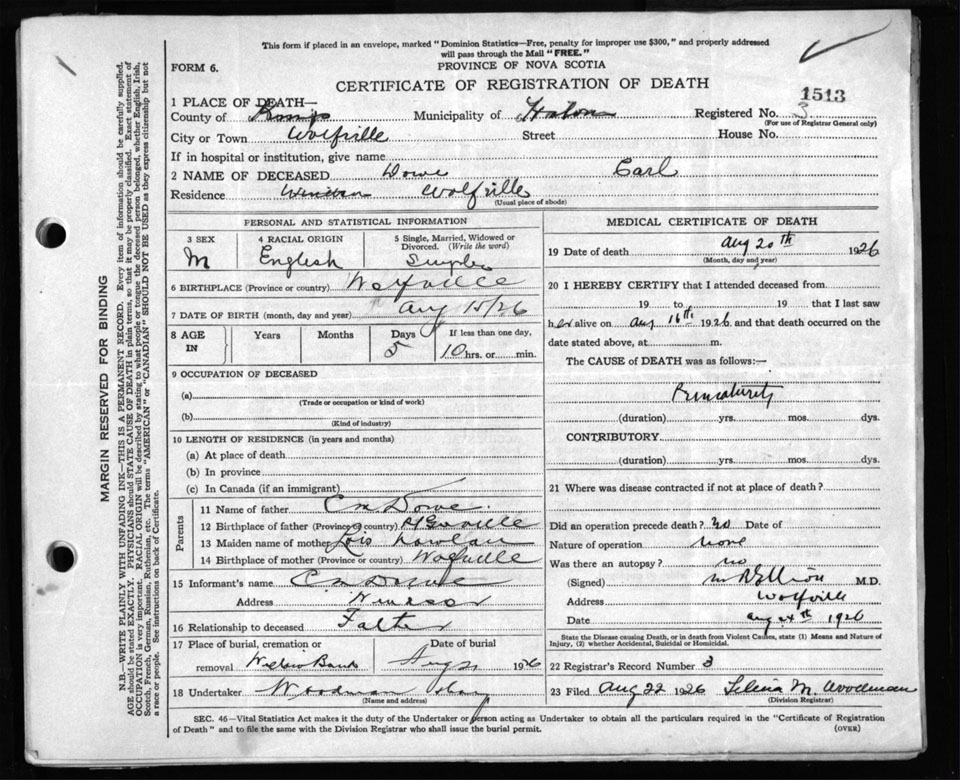 This form if placed in an envelope, marked "Dominion Statistics—Free, penalty for improper use $300," and properly addressed
will pass through the Mail "FREE."
FORM 6.
PROVINCE OF NOVA SCOTIA
CERTIFICATE OF REGISTRATION OF DEATH
1513
1 PLACE OF DEATH—
County of Kings Municipality of Registered No. 3
(For use of Registrar General only)
City or Town Wolfville Street House No.
If in hospital or institution, give name
2 NAME OF DECEASED Dowe Carl
Residence Wolfville
(Usual place of abode)
PERSONAL AND STATISTICAL INFORMATION
3 SEX 4 RACIAL ORIGIN 5 Single, Married, Widowed or
Divorced. (Write the word)
M English Single
6 BIRTHPLACE (Province or country) Wolfville
7 DATE OF BIRTH (month, day and year) Aug 15/26
8 AGE IN Years Months Days If less than one day,
5 10 hrs. or min.
9 OCCUPATION OF DECEASED
(a)
(Trade or occupation or kind of work)
(b)
(Kind of industry)
10 LENGTH OF RESIDENCE (in years and months)
(a) At place of death
(b) In province
(c) In Canada (if an immigrant)
Parents
11 Name of father C M Dowe
12 Birthplace of father (Province or country)
13 Maiden name of mother Lois
14 Birthplace of mother (Province or country) Wolfville
15 Informant's name C M Dowe
Address Windsor
16 Relationship to deceased Father
17 Place of burial, cremation or Date of burial
removal Willow Bank Aug 21 1926
18 Undertaker Woodman
(Name and address)
MEDICAL CERTIFICATE OF DEATH
19 Date of death Aug 20th 1926
(Month, day and year)
20 I HEREBY CERTIFY that I attended deceased from
19 to 19 that I last saw
h alive on Aug 16th 1926 and that death occurred on the
date stated above, at m.
The CAUSE of DEATH was as follows:—
Prematurity
(duration) yrs. mos. dys.
CONTRIBUTORY
(duration) yrs. mos. dys.
21 Where was disease contracted if not at place of death?
Did an operation precede death? no Date of
Nature of operation none
Was there an autopsy? no
(Signed) M R Elliott M.D.
Address Wolfville
Date Aug 1926
State the Disease causing Death, or in death from Violent Causes, state (1) Means and Nature of
Injury, (2) whether Accidental, Suicidal or Homicidal.
22 Registrar's Record Number 3
23 Filed Aug 22 1926 M. Woodman
(Division Registrar)
SEC. 46—Vital Statistics Act makes it the duty of the Undertaker or person acting as Undertaker to obtain all the particulars required in the "Certificate of Registration
of Death" and to file the same with the Division Registrar who shall issue the burial permit. (OVER)
MARGIN RESERVED FOR BINDING
N.B.—WRITE PLAINLY WITH UNFADING INK—THIS IS A PERMANENT RECORD. Every item of information should be carefully supplied.
AGE should be stated EXACTLY. PHYSICIANS should STATE CAUSE OF DEATH in plain terms, so that it may be properly classified. Exact statement of
OCCUPATION is very important. RACIAL ORIGIN will be described by stating to what people or tongue the deceased person belonged, whether English, Irish,
Scotch, French, German, Russian, Ruthenian, etc. The terms "AMERICAN" or "CANADIAN" SHOULD NOT BE USED as they express citizenship but not
a race or people. See instructions on back of Certificate.